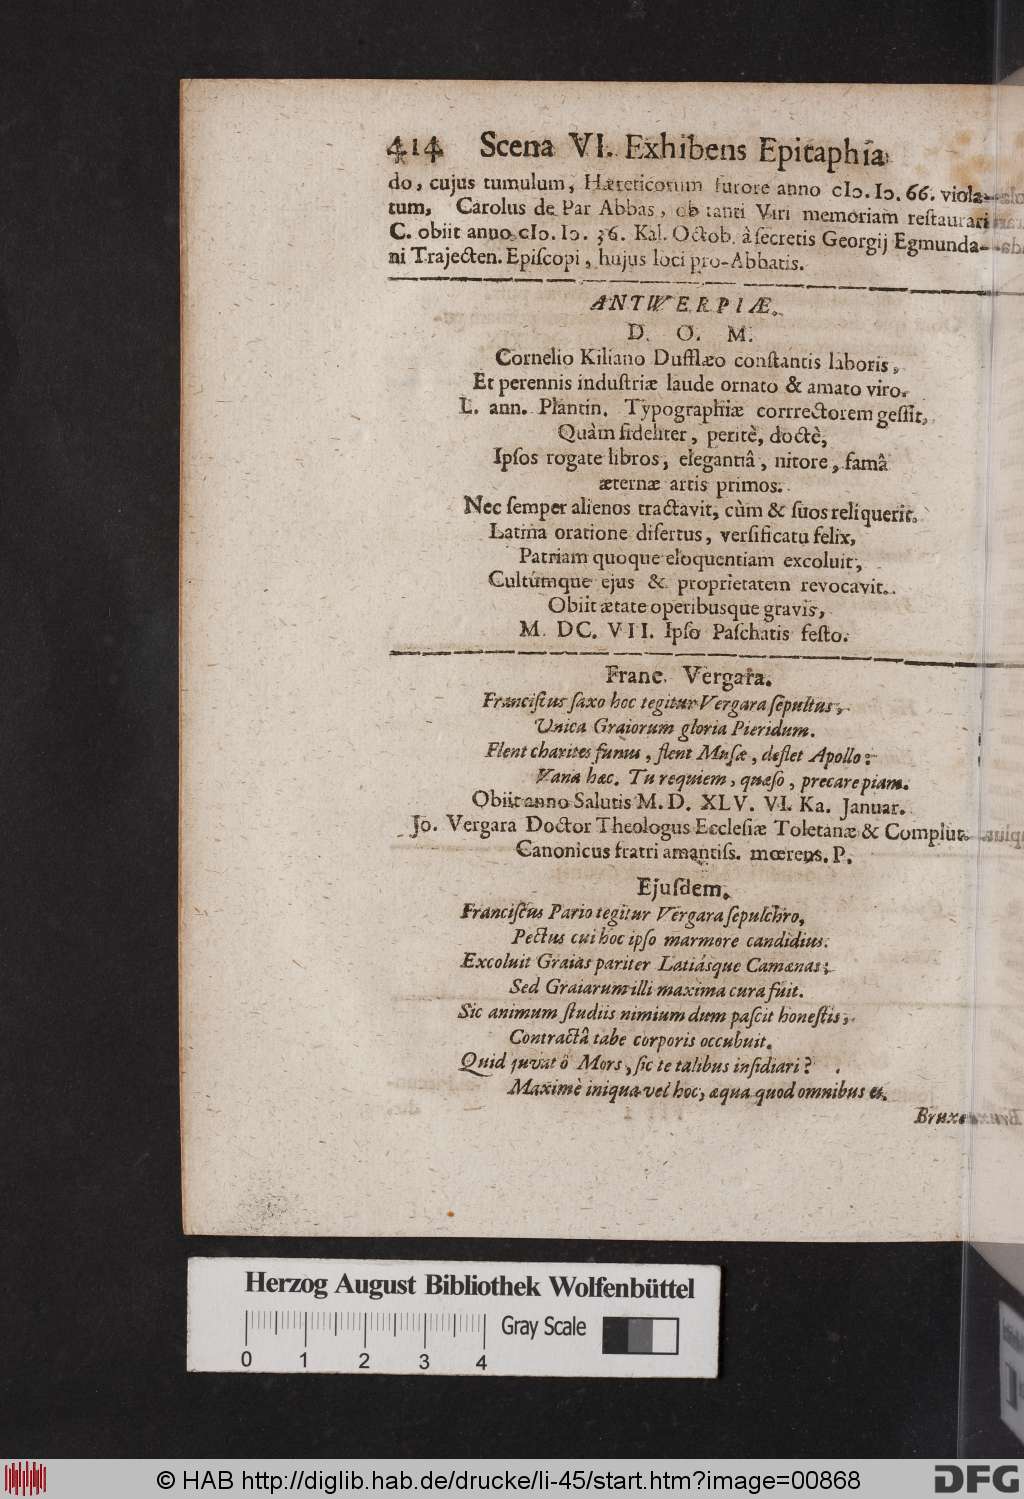 414 Scena VI. Exhibens Epitaphia
do, cujus tumulum, Hæreticorum furore anno cIↄ. Iↄ. 66. viola-
tum, Carolus de Par Abbas, ob tanti Viri memoriam restaurari
C. obiit anno cIↄ. Iↄ. 36. Kal. Octob. à secretis Georgij Egmunda-
ni Trajecten. Episcopi, hujus loci pro-Abbatis.
ANTWERPIÆ.
D. O. M.
Cornelio Kiliano Dufflæo constantis laboris,
Et perennis industriæ laude ornato & amato viro.
L. ann. Plantin. Typographiæ corrrectorem gessit,
Quàm fideliter, peritè, doctè,
Ipsos rogate libros, elegantiâ, nitore, famâ
æternæ artis primos.
Nec semper alienos tractavit, cùm & suos reliquerit.
Latina oratione disertus, versificatu felix,
Patriam quoque eloquentiam excoluit,
Cultúmque ejus & proprietatem revocavit.
Obiit ætate operibusque gravis,
M. DC. VII. Ipso Paschatis festo.
Franc. Vergara.
Franciscus saxo hoc tegitur Vergara sepultus,
Unica Graiorum gloria Pieridum.
Flent charites funus, flent Musæ, deflet Apollo:
Vana hæc. Tu requiem, quæso, precare piam.
Obiit anno Salutis M. D. XLV. VI. Ka. Januar.
Jo. Vergara Doctor Theologus Ecclesiæ Toletanæ & Complut.
Canonicus fratri amantiss. mœrens. P.
Ejusdem.
Franciscus Pario tegitur Vergara sepulchro,
Pectus cui hoc ipso marmore candidius.
Excoluit Graias pariter Latiásque Camænas;
Sed Graiarum illi maxima cura fuit.
Sic animum studiis nimium dum pascit honestis,
Contractâ tabe corporis occubuit.
Quid juvat ô Mors, sic te talibus insidiari?
Maximè iniqua vel hoc, æqua quod omnibus es.
Brux.
Herzog August Bibliothek Wolfenbüttel
Gray Scale
0 1 2 3 4
© HAB http://diglib.hab.de/drucke/li-45/start.htm?image=00868
DFG